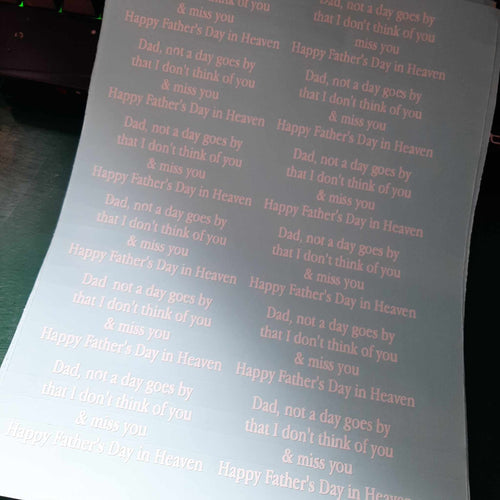 that I don't think of you
& miss you
Happy Father's Day in Heaven
Dad, not a day goes by
that I don't think of you
& miss you
Happy Father's Day in Heaven
Dad, not a day goes by
that I don't think of you
& miss you
Happy Father's Day in Heaven
Dad, not a day goes by
that I don't think of you
& miss you
Happy Father's Day in Heaven
Dad, not a day goes by
that I don't think of you
& miss you
Happy Father's Day in Heaven
Dad, not a day goes by
that I don't think of you
& miss you
Happy Father's Day in Heaven
Dad, not a day goes by
that I don't think of you
miss you
Happy Father's Day in Heaven
Dad, not a day goes by
that I don't think of you
& miss you
Happy Father's Day in Heaven
Dad, not a day goes by
that I don't think of you
& miss you
Happy Father's Day in Heaven
Dad, not a day goes by
that I don't think of you
& miss you
Happy Father's Day in Heaven
Dad, not a day goes by
that I don't think of you
& miss you
Happy Father's Day in Heaven
Dad, not a day goes by
that I don't think of you
& miss you
Happy Father's Day in Heaven